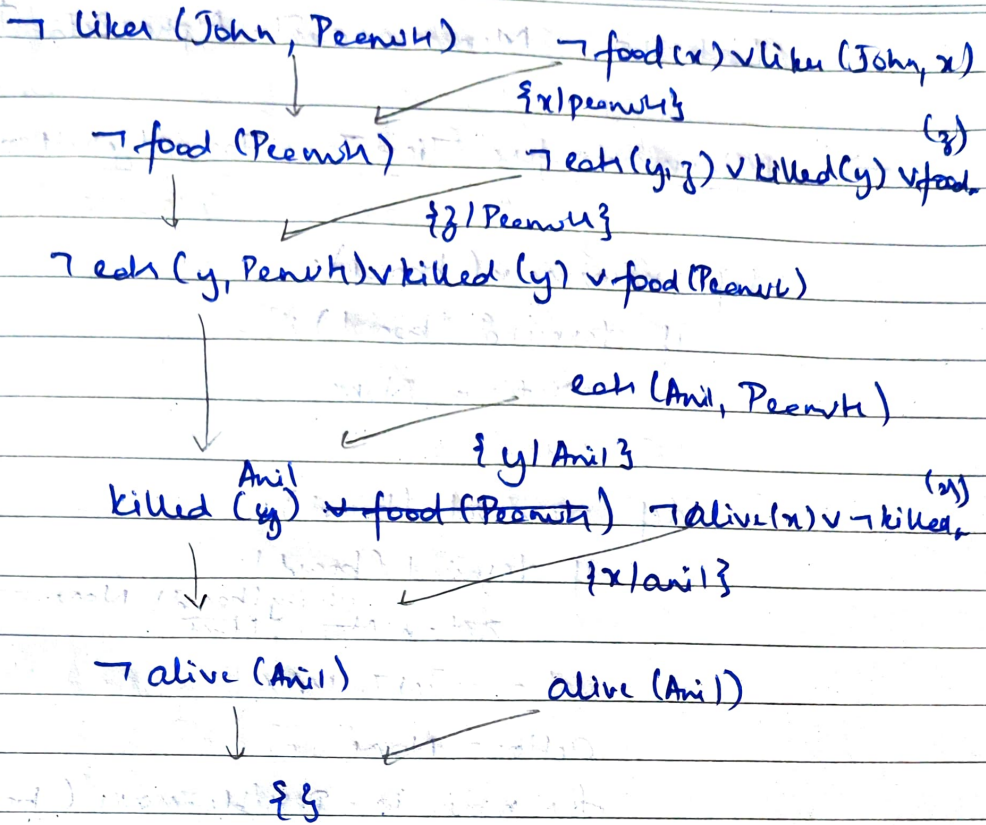 ¬ likes (John, Peanuts)    ¬ food(x) ∨ likes (John, x)
{x/peanuts}
¬ food (Peanuts)    ¬ eats (y, z) ∨ killed(y) ∨ food (z)
{z/Peanuts}
¬ eats (y, Peanuts) ∨ killed (y) ∨ food (Peanuts)
eats (Anil, Peanuts)
{y/Anil}
killed (Anil)    ¬ alive(x) ∨ ¬ killed (x)
{x/anil}
¬ alive (Anil)    alive (Anil)
{}